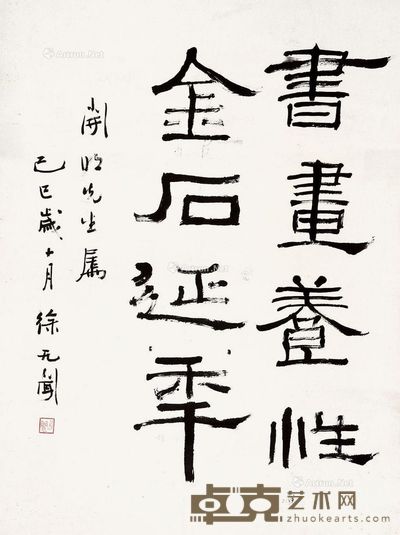 書畫養性
金石延秊
開先生屬
己巳歲十月 徐无聞
Artron.Net
卓克艺术网
zhuokearts.com